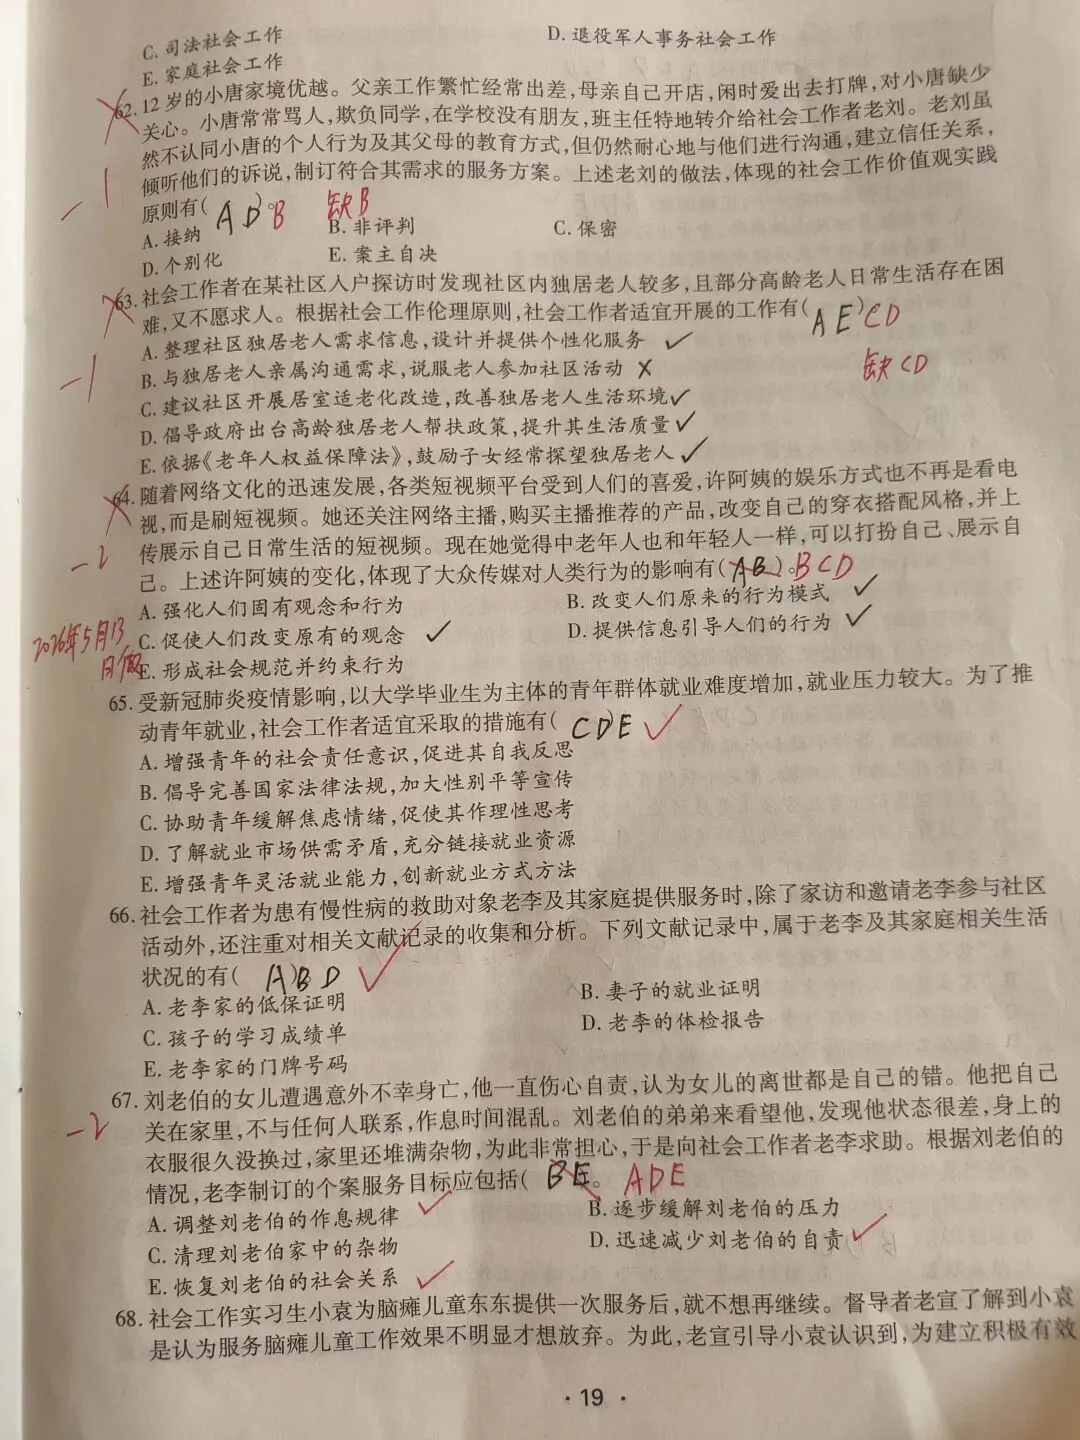 C. 司法社会工作
D. 退役军人事务社会工作
E. 家庭社会工作
62. 12 岁的小唐家境优越。父亲工作繁忙经常出差,母亲自己开店,闲时爱出去打牌,对小唐缺少
关心。小唐常常骂人,欺负同学,在学校没有朋友,班主任特地转介给社会工作者老刘。老刘虽
然不认同小唐的个人行为及其父母的教育方式,但仍然耐心地与他们进行沟通,建立信任关系,
倾听他们的诉说,制订符合其需求的服务方案。上述老刘的做法,体现的社会工作价值观实践
-1
原则有( AD )。B 缺B
A. 接纳
B. 非评判
C. 保密
D. 个别化
E. 案主自决
63. 社会工作者在某社区入户探访时发现社区内独居老人较多,且部分高龄老人日常生活存在困
难,又不愿求人。根据社会工作伦理原则,社会工作者适宜开展的工作有( AE )CD
A. 整理社区独居老人需求信息,设计并提供个性化服务 ✓
缺CD
-1
B. 与独居老人亲属沟通需求,说服老人参加社区活动 ✗
C. 建议社区开展居室适老化改造,改善独居老人生活环境 ✓
D. 倡导政府出台高龄独居老人帮扶政策,提升其生活质量 ✓
E. 依据《老年人权益保障法》,鼓励子女经常探望独居老人 ✓
64. 随着网络文化的迅速发展,各类短视频平台受到人们的喜爱,许阿姨的娱乐方式也不再是看电
视,而是刷短视频。她还关注网络主播,购买主播推荐的产品,改变自己的穿衣搭配风格,并上
-2
传展示自己日常生活的短视频。现在她觉得中老年人也和年轻人一样,可以打扮自己、展示自
己。上述许阿姨的变化,体现了大众传媒对人类行为的影响有( AB )。BCD
A. 强化人们固有观念和行为
B. 改变人们原来的行为模式 ✓
2026年5月13
日做
C. 促使人们改变原有的观念 ✓
D. 提供信息引导人们的行为 ✓
E. 形成社会规范并约束行为
65. 受新冠肺炎疫情影响,以大学毕业生为主体的青年群体就业难度增加,就业压力较大。为了推
动青年就业,社会工作者适宜采取的措施有( CDE ✓
A. 增强青年的社会责任意识,促进其自我反思
B. 倡导完善国家法律法规,加大性别平等宣传
C. 协助青年缓解焦虑情绪,促使其作理性思考
D. 了解就业市场供需矛盾,充分链接就业资源
E. 增强青年灵活就业能力,创新就业方式方法
66. 社会工作者为患有慢性病的救助对象老李及其家庭提供服务时,除了家访和邀请老李参与社区
活动外,还注重对相关文献记录的收集和分析。下列文献记录中,属于老李及其家庭相关生活
状况的有( ABD ✓
A. 老李家的低保证明
B. 妻子的就业证明
C. 孩子的学习成绩单
D. 老李的体检报告
E. 老李家的门牌号码
67. 刘老伯的女儿遭遇意外不幸身亡,他一直伤心自责,认为女儿的离世都是自己的错。他把自己
-2
关在家里,不与任何人联系,作息时间混乱。刘老伯的弟弟来看望他,发现他状态很差,身上的
衣服很久没换过,家里还堆满杂物,为此非常担心,于是向社会工作者老李求助。根据刘老伯的
情况,老李制订的个案服务目标应包括( BE 。 ADE
A. 调整刘老伯的作息规律 ✓
B. 逐步缓解刘老伯的压力
C. 清理刘老伯家中的杂物
D. 迅速减少刘老伯的自责 ✓
E. 恢复刘老伯的社会关系 ✓
68. 社会工作实习生小袁为脑瘫儿童东东提供一次服务后,就不想再继续。督导者老宣了解到小袁
是认为服务脑瘫儿童工作效果不明显才想放弃。为此,老宣引导小袁认识到,为建立积极有效
· 19 ·